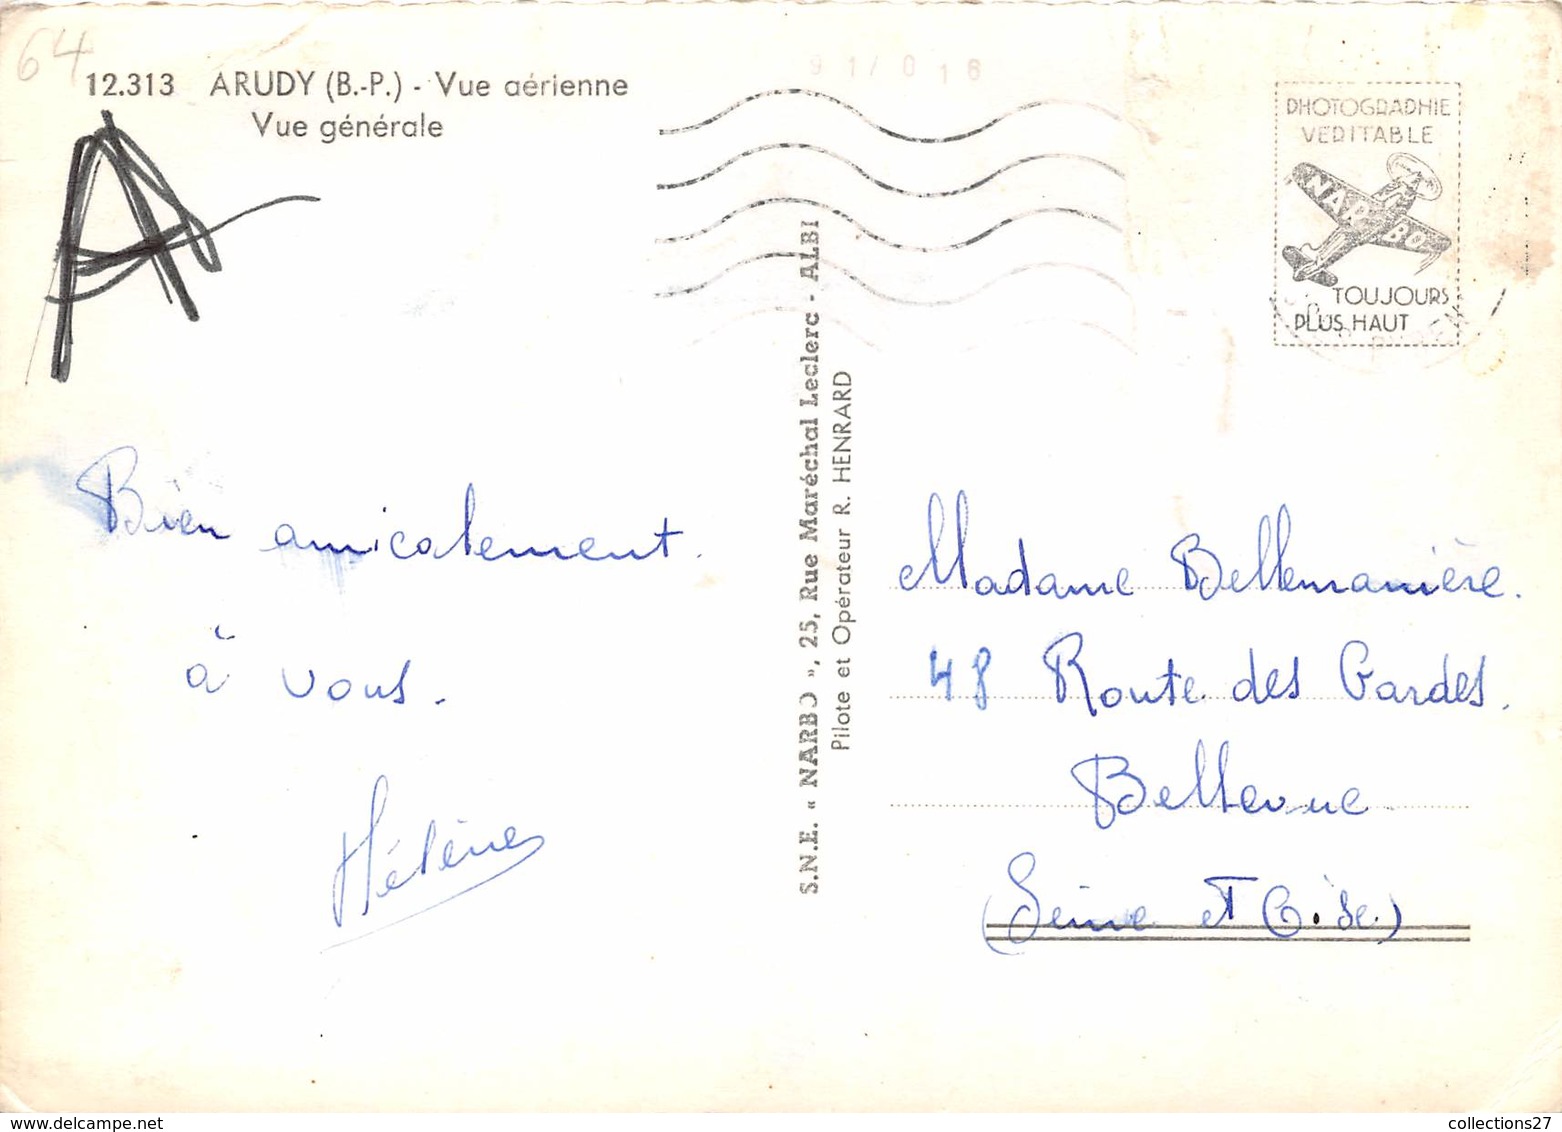 64
12.313 ARUDY (B.-P.) - Vue aérienne
Vue générale
A
PHOTOGRAPHIE
VERITABLE
NARBO
TOUJOURS
PLUS HAUT
Bien amicalement.
à vous.
Hélène
S.N.E. « NARBO », 25, Rue Maréchal Leclerc - ALBI
Pilote et Opérateur R. HENRARD
Madame Bellemanière.
48 Route des Gardes.
Bellevue
(Seine et Oise.)
www.delcampe.net
collections27